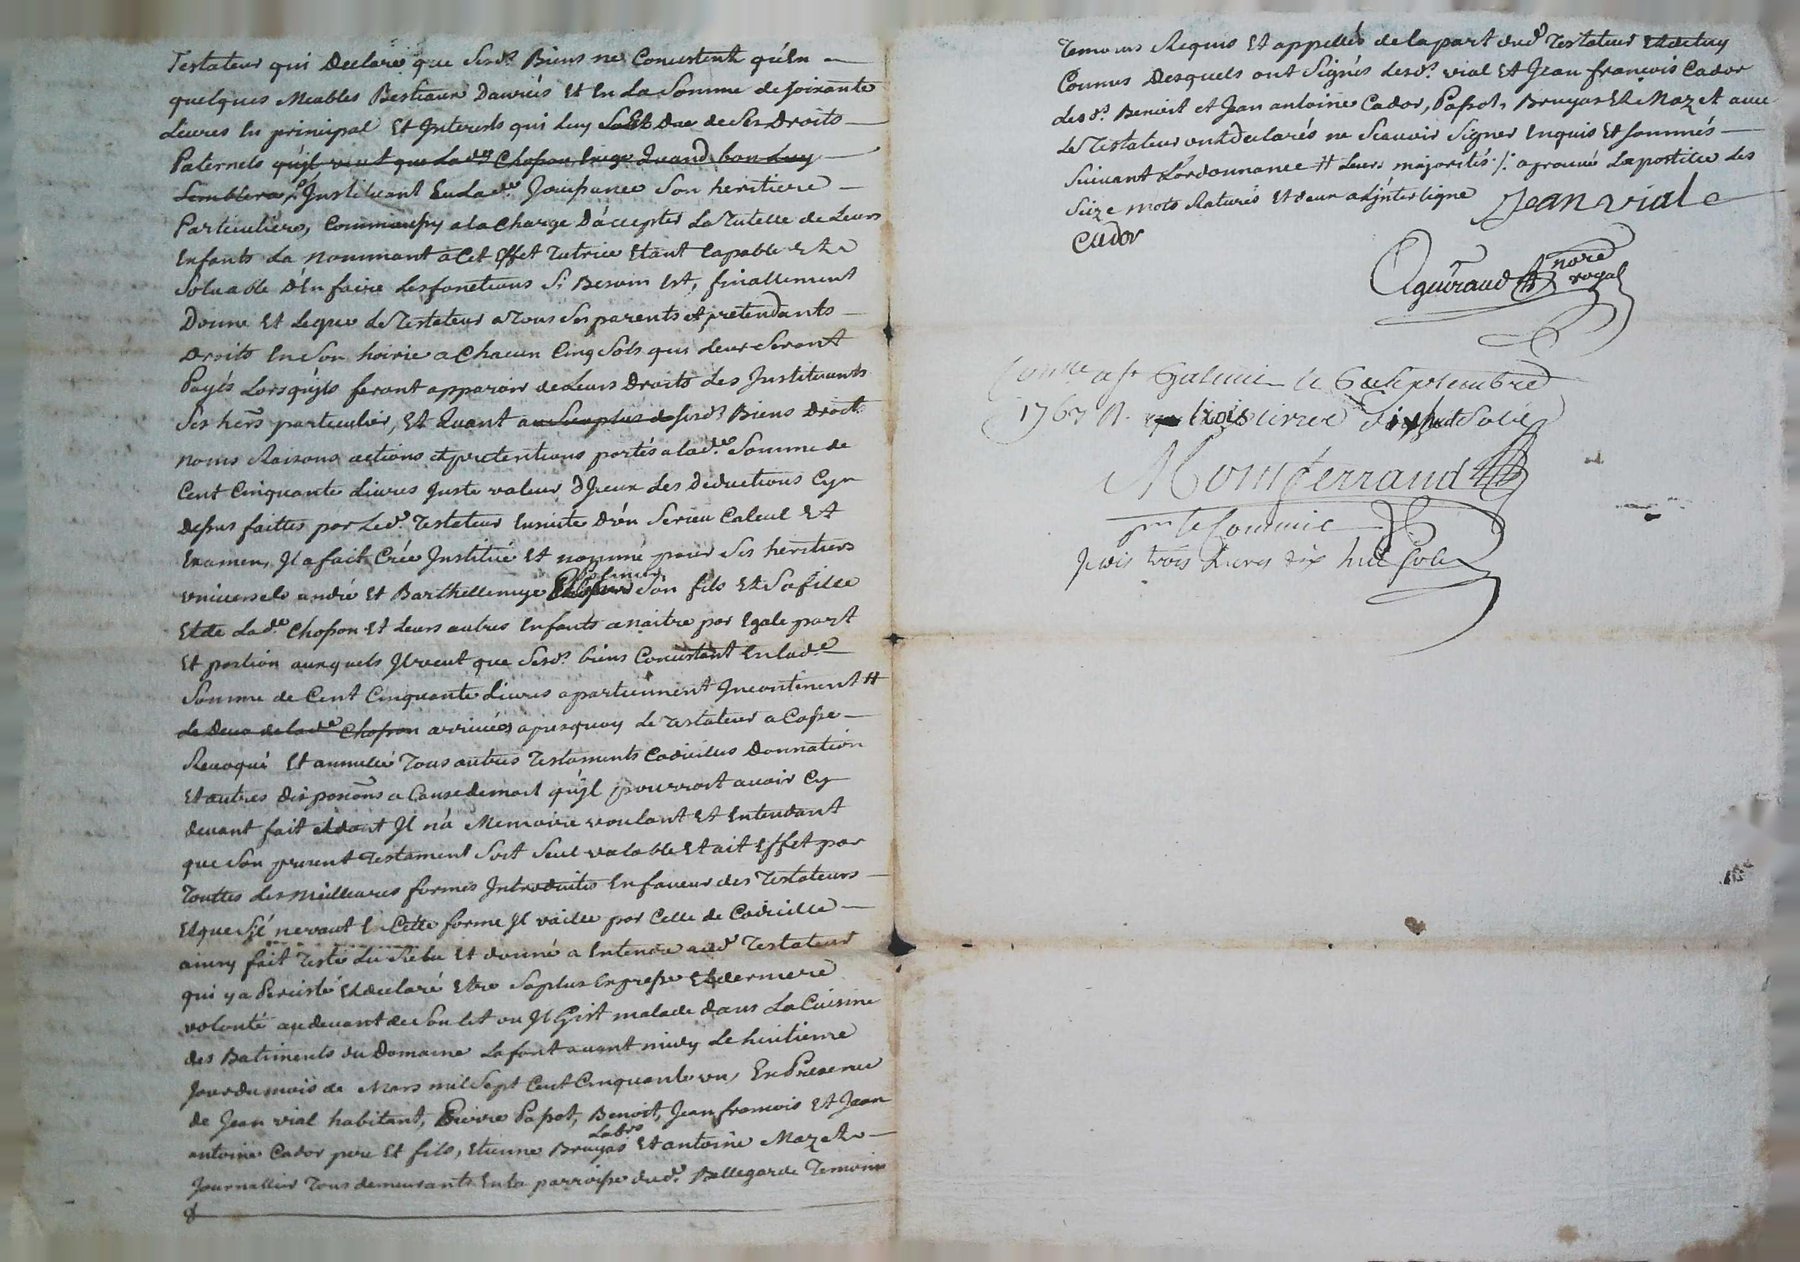 Testateur qui Declare que sesd.s Biens ne Concistent qu'En
quelques Meubles Bestiaux Danrées Et En La Somme de soixante
Livres En principal Et Interests qui Luy Sont Due de Ses Droits
Paternels qu'jl veut que Lad.e Chopon Exige Quand bon Luy
Semblera Instituant En Lad.e Jouissance Son heritiere
Particuliere, a la Charge D'accepter La Tutelle de Leurs
Enfants La nommant a Cet Effet Tutrice Etant Capable Et
Solvable D'En faire Les fonctions Si Besoin Est, finallement
Donne Et Legue Le Testateur a Tous Ses parents et pretendants
Droits En Son hoirie a Chacun Cinq Sols qui Leur Seront
Payés Lorsqu'jls feront apparoir de Leurs Droits Les Instituants
Ses hers particulier, Et Quant au Surplus de sesd.s Biens Droits
noms Raisons actions et pretentions portés a lad.e Somme de
Cent Cinquante Livres Juste valeur d'Jceux Les deductions Cy
dessus faittes par Led.t Testateur Ensuite D'un Serieu Calcul Et
Examen, Jl a fait Crée Institué Et nommé pour Ses heritiers
universels andré Et Barthellemye Son fils Et Sa fille
Et de Lad.e Chopon Et Leurs autres Enfants a naitre par Egale part
Et portion auxquels Jl veut que Sesd.s biens Concistant En lad.e
Somme de Cent Cinquante Livres apartiennent Incontinent #
Le Deces de lad.e Chopon arrivée, apres quoy Le Testateur a Cassé
Revoqué Et annullé Tous autres Testaments Codicilles Donnation
Et autres disposons a Cause de mort qu'jl pourroit avoir Cy
devant fait et dont Jl n'a Memoire voulant Et Entendant
que Son present Testament Soit Seul valable Et ait Effet par
Touttes Les Meilleures formes Introduites En faveur des Testateurs
Et que S'jl ne vaut En Cette forme Jl vaille par Celle de Codicille
ainsy fait Testé Lu Relu Et donné a Entendre aud.t Testateur
qui y a Percisté Et declaré Etre Sa plus Expresse Et derniere
volonté au devant de Son Lit ou Jl Gist malade dans La Cuisine
des Batiments du Domaine Lafont avant midy Le huitieme
Jour du mois de Mars mil Sept Cent Cinquante un, En Presence
de Jean vial habitant, Pierre Papot, Benoit, Jean francois Et Jean
Labro
antoine Cador pere Et fils, Etienne Bruyas Et antoine Mazet
Journallier Tous demeurants En la parroisse dud.t Bellegarde Temoins
Temoins Requis Et appellés de la part dud.t Testateur Et de Luy
Connus Desquels ont Signés Lesd.s vial Et Jean françois Cador
Lesd.s Benoit et Jean antoine Cador, Papot, Bruyas Et Mazet avec
Le Testateur ont declarés ne Scavoir Signer Enquis Et Sommés
Suivant Lordonnance # Leurs majorités ./. aprouué La postille Les
Seize mots Raturés Et deux a L'jnterligne Jean vial
Cador
Aguiraud nore
royal
Conlle a St Galmier le 6 Septembre
1767 R. trois livres dix huit Sols
Montferrand
pr le Commis
Je dis trois Livres dix huit Sols